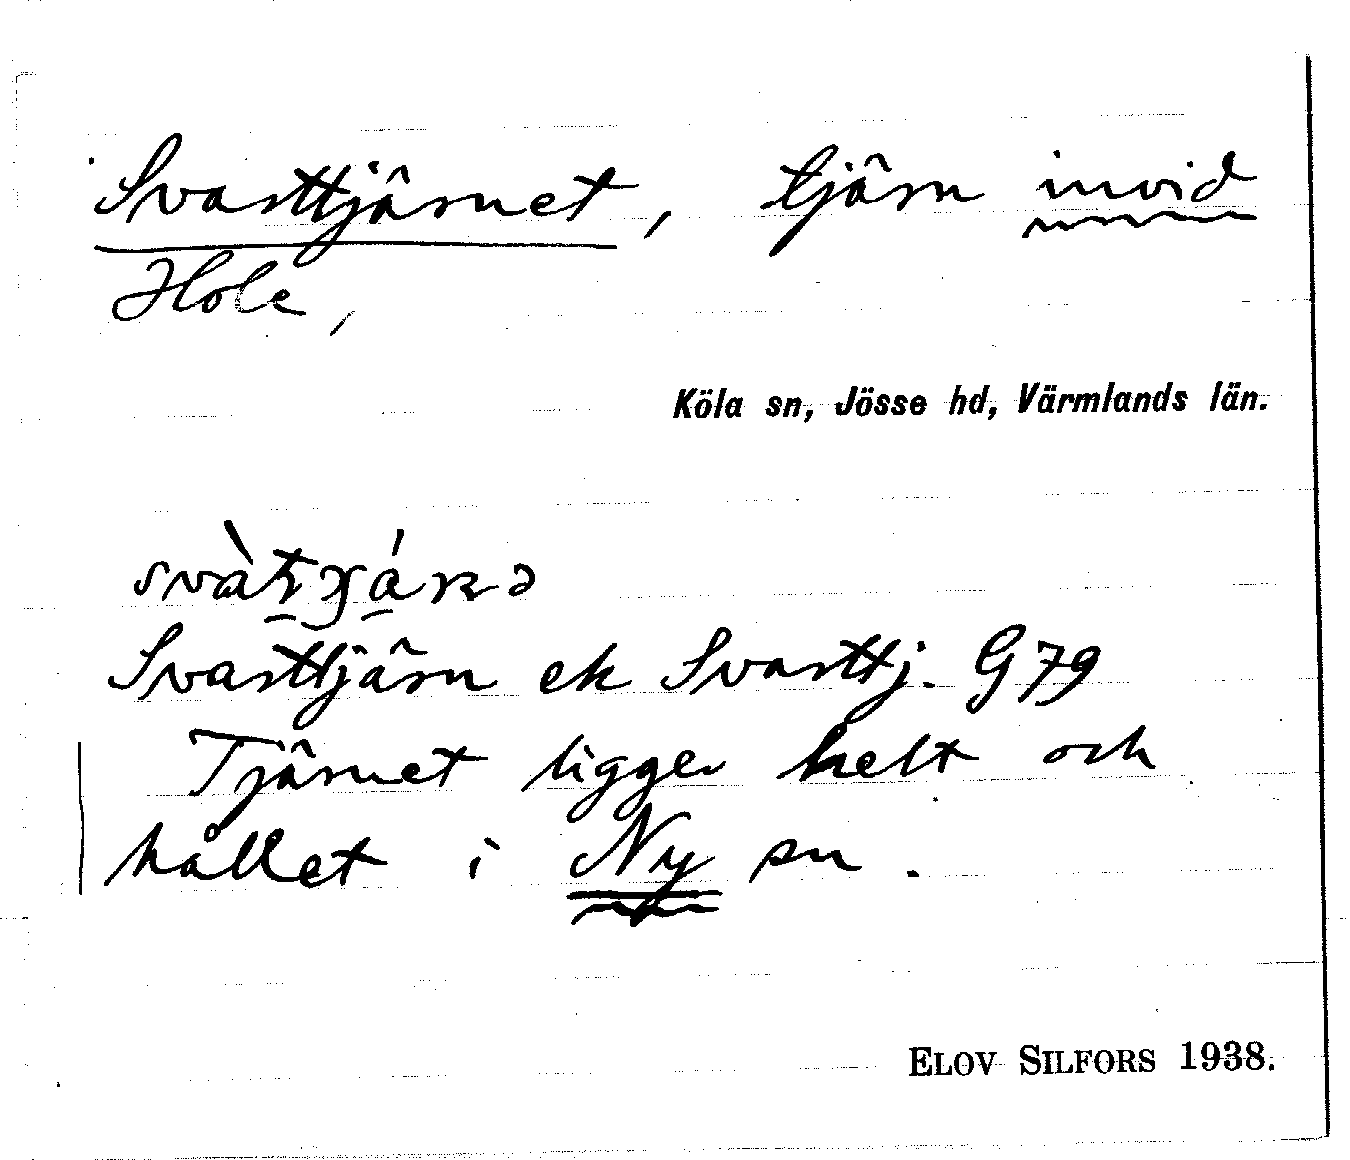 Svarttjärnet, tjärn invid
Hole,
Köla sn, Jösse hd, Värmlands län.
Svarttjärn ek Svarttj. G79
Tjärnet ligger helt och
hållet i Ny sn.
ELOV SILFORS 1938.